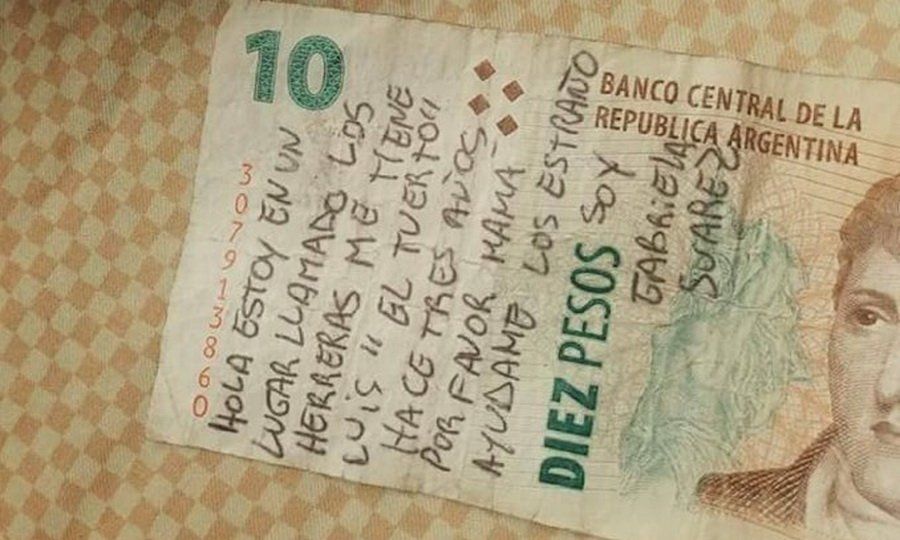 10
307913860
BANCO CENTRAL DE LA
REPUBLICA ARGENTINA
DIEZ PESOS
HOLA ESTOY EN UN
LUGAR LLAMADO LOS
HERRERAS ME TIENE
LUIS "EL TUERTO"
HACE TRES AÑOS
POR FAVOR MAMÁ
AYUDAME LOS ESTRAÑO
SOY
GABRIELA
SUAREZ